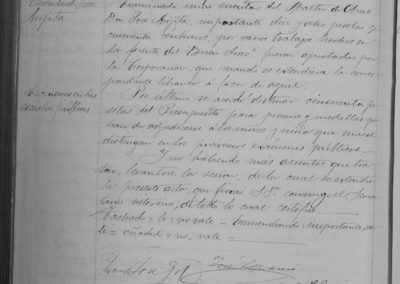 Cuenta de José
Argilta
Examinada una cuentas del Maestro de Obras
Don José Argilta, importante diez y ocho pesetas y
cincuenta centimos, por varios trabajos hechos en
la fuente del "Buen deseo" fueron aprobadas por
la Corporacion, que mandó se extendiera la corres
pondiente libranza á favor de aquel.
Examenes en las
escuelas publicas
Por último se acordó destinar cincuenta pe
setas del Presupuesto para premios y medallas que
han de adjudicarse á los niños y niñas que mas se
distingan en los proximos exámenes públicos.
Y no habiendo más asuntos que tra
tar, levantose la sesion, de la cual se extendió
la presente acta, que firmó S.S. conmigo el Secre
tario interino, de todo lo cual certifico.
Tachado = le = no vale = Enmendando = importante, va
le = añadido = no, vale =
José